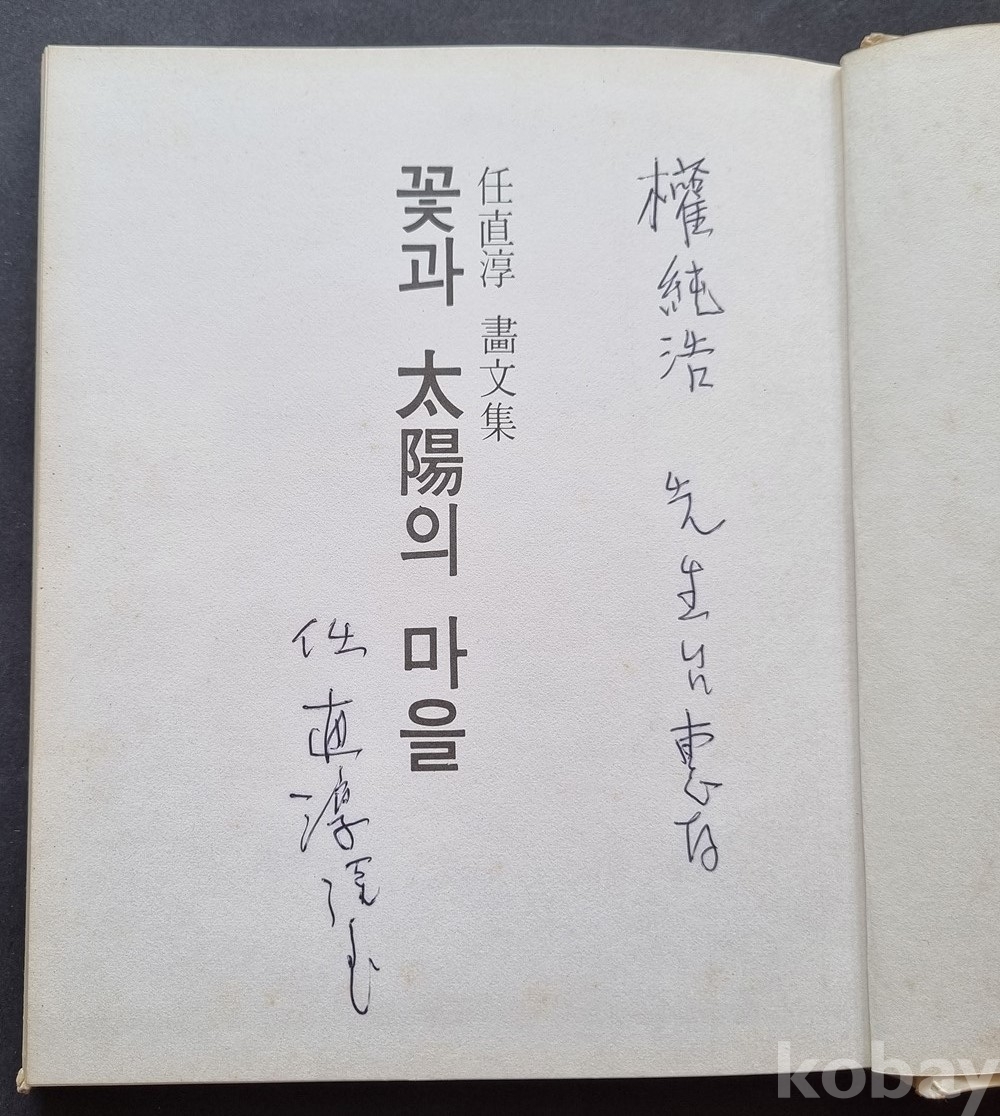 權純浩 先生 惠存
任直淳 畵文集
꽃과 太陽의 마을
任直淳
kobay